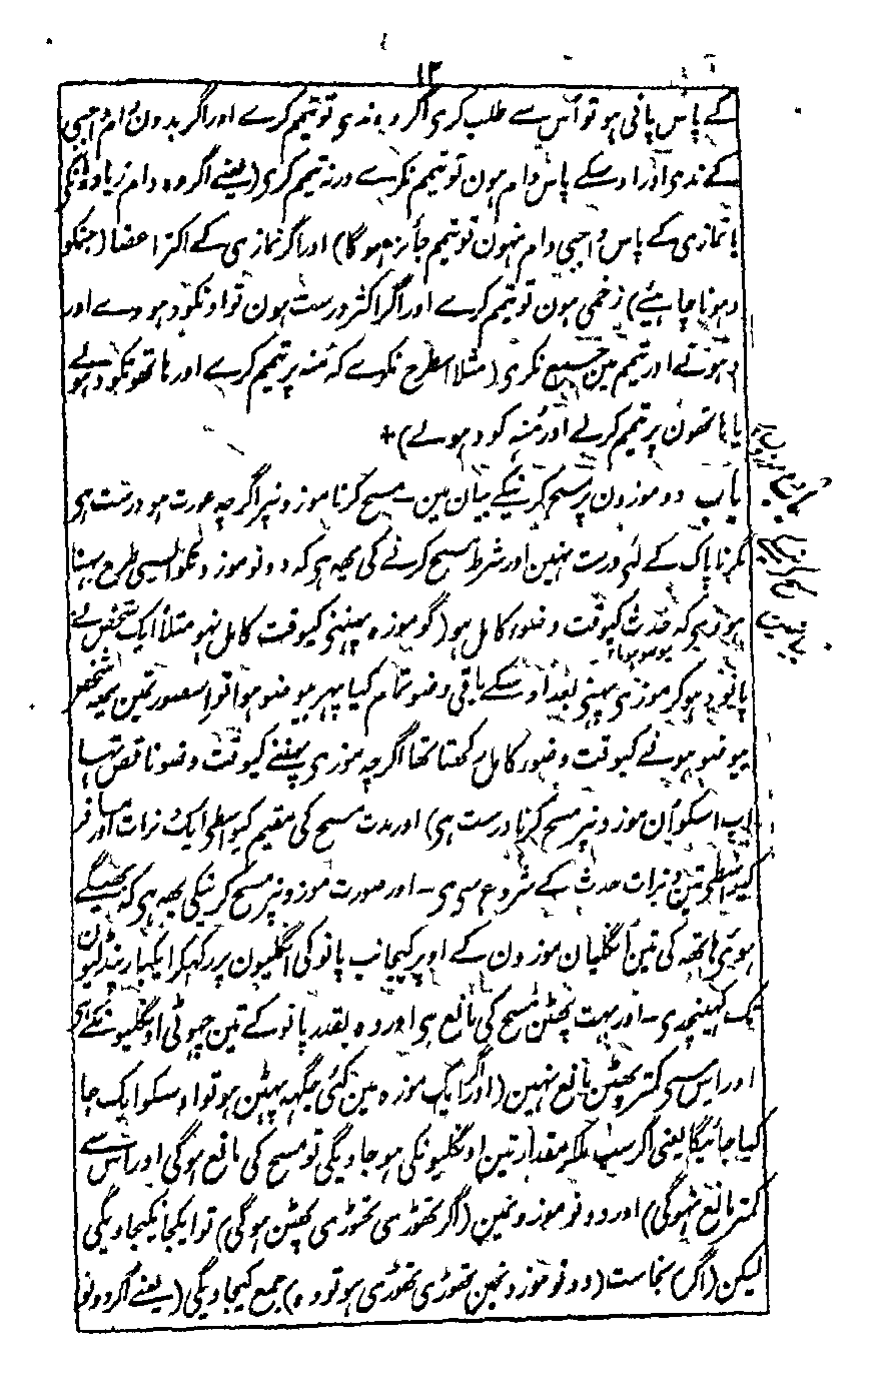 ۱۳
کے پاس پانی ہو تو اُس سے طلب کری اگر وہ ندی تو تیمم کرے اور اگر بدون دام واجبی
کے ندی اور اوسکے پاس دام ہون تو تیمم نکرے ورنہ تیمم کری (یعنے اگر وہ دام زیادہ مانگی
یا نمازی کے پاس واجبی دام نہون تو تیمم جائز ہوگا) اور اگر نمازی کے اکثر اعضا (جنکو
دہونا چاہئے) زخمی ہون تو تیمم کرے اور اگر اکثر درست ہون تو اونکو دہووے اور
دہونے اور تیمم مین جمع نکری (مثلا اسطرح نکرے کہ مُنہ پر تیمم کرے اور ہاتھونکو دہولے
یا ہاتھون پر تیمم کرلے اور مُنہ کو دہولے) +
باب دو موزون پر مسح کرنیکے بیان مین ۔ مسح کرنا موزونپر اگرچہ عورت ہو درست ہی
مگر ناپاک کے لئے درست نہین اور شرط مسح کرنے کی یہہ ہی کہ دونو موزونکو ایسی طرح پہنا
ہووے کہ حدث کیوقت وضو کامل ہو (گو موزہ پہننے کیوقت کامل نہو مثلاً ایک شخص نے
پانو دہوکر موزی پہنے بعد اوسکے باقی وضو تمام کیا پہر بیوضو ہوا تو اسصورتمین یہہ شخص
بیوضو ہونے کیوقت وضو کامل رکھتا تھا اگرچہ موزی پہننے کیوقت وضو ناقص تہا
اب اسکو اُن موزونپر مسح کرنا درست ہی) اور مدت مسح کی مقیم کیواسطے ایک نرات اور مسافر
کیواسطے تین نرات حدث کے شروع سے ہی ۔ اور صورت موزونپر مسح کرنیکی یہہ ہی کہ بھیگے
ہوئے ہاتھہ کی تین اُنگلیان موزون کے اوپر کیجانب پانو کی اُنگلیون پر رکہکر ایکبار پنڈلیون
تک کہینچدی ۔ اور بہت پھٹن مسح کی مانع ہی اور وہ بقدر پانو کے تین چھوٹی اونگلیونکے ہی
اور اس سے کمتر پھٹن مانع نہین (اور اگر ایک موزہ مین کئی جگہہ پہٹن ہو تو اوسکو ایک جا
کیا جائیگا یعنی اگر سب ملکر مقدار تین اونگلیونکی ہو جاویگی تو مسح کی مانع ہوگی اور اس سے
کمتر مانع نہوگی) اور دونو موزونمین (اگر تھوڑی تھوڑی پھٹن ہوگی) تو ایکجا نکیجاویگی
لیکن (اگر) نجاست (دونو موزونمین تھوڑی تھوڑی ہو تو وہ) جمع کیجاویگی (یعنے اگر دونو